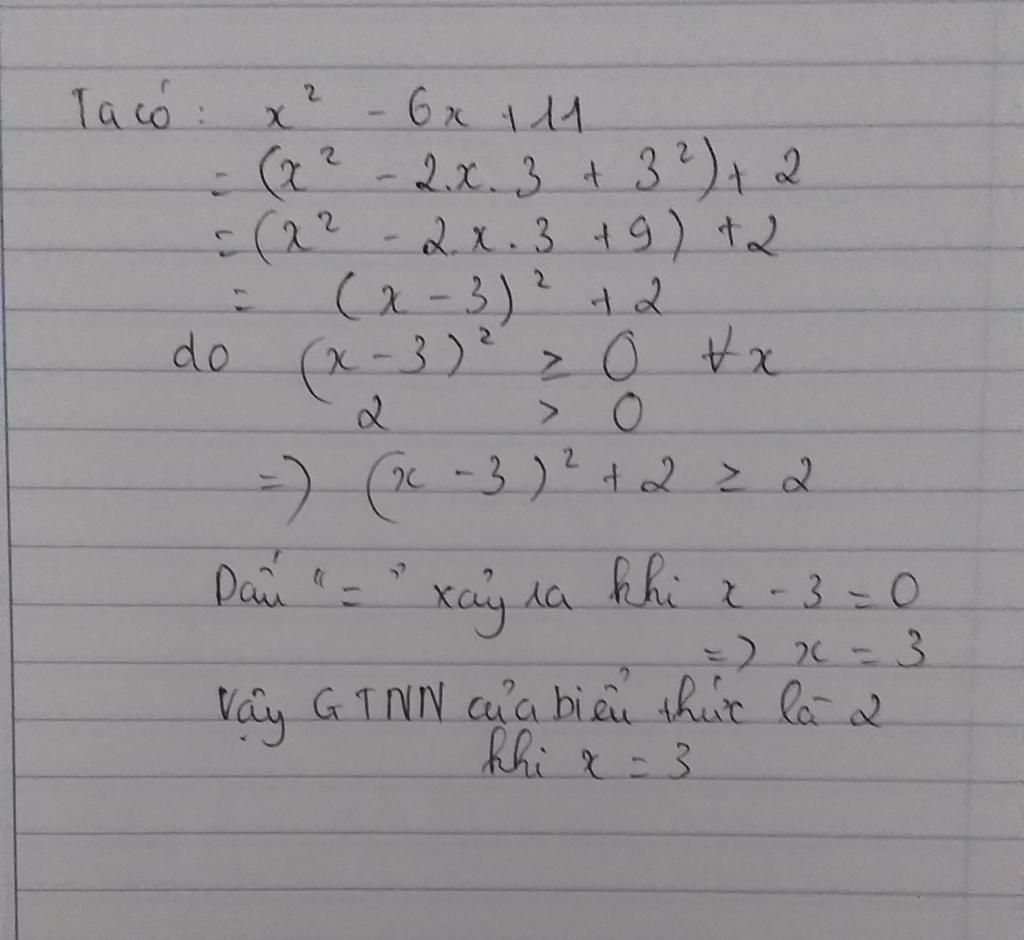 Ta có: x² - 6x + 11
= (x² - 2.x.3 + 3²) + 2
= (x² - 2.x.3 + 9) + 2
= (x - 3)² + 2
do (x - 3)² ≥ 0 ∀x
2 > 0
=> (x - 3)² + 2 ≥ 2
Dấu "=" xảy ra khi x - 3 = 0
=> x = 3
Vậy GTNN của biểu thức là 2
khi x = 3